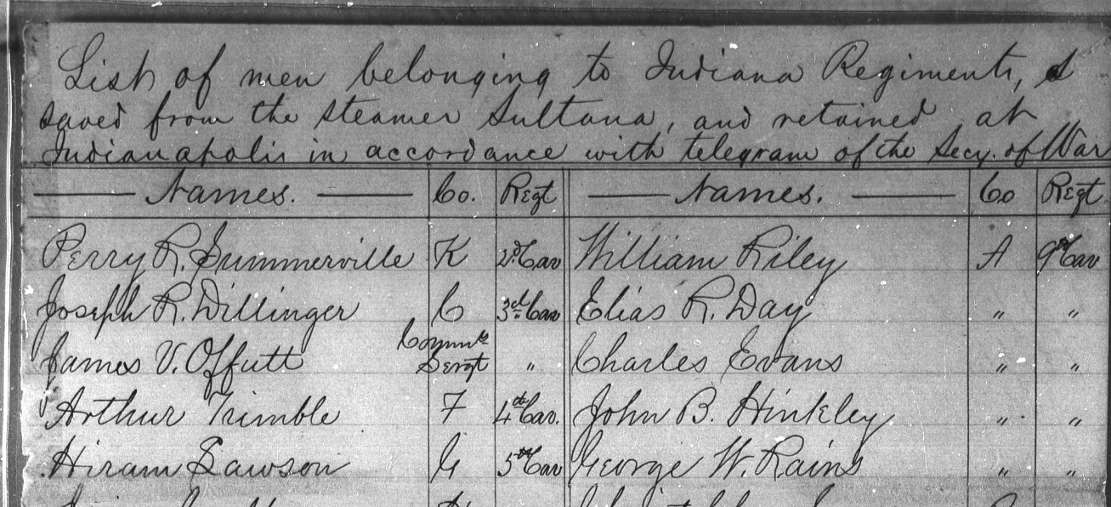 List of men belonging to Indiana Regiments,
saved from the steamer Sultana, and retained at
Indianapolis in accordance with telegram of the Secy. of War
Names. Co. Regt Names. Co Regt
Perry R. Summerville K 2d Cav William Riley A 9th Cav
Joseph R. Dillinger C 3d Cav Elias R. Day " "
James V. Offutt Commis Sergt " Charles Evans " "
Arthur Trimble F 4th Cav. John B. Hinkley " "
Hiram Lawson G 5th Cav George W. Rains " "